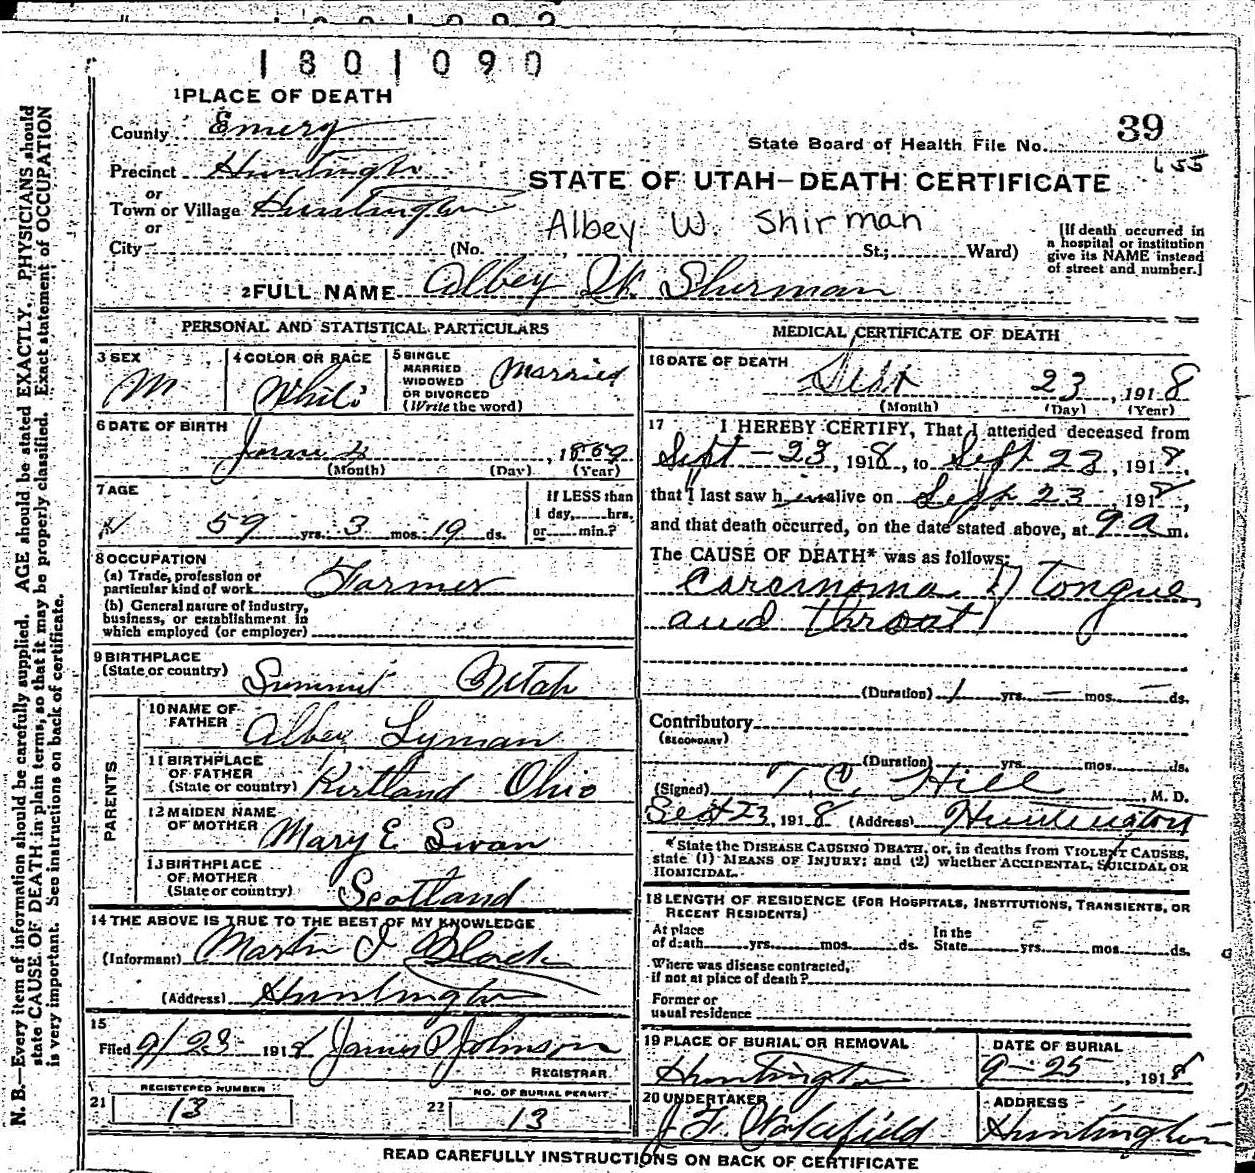 1801090
1 PLACE OF DEATH
County Emery
State Board of Health File No. 39
655
Precinct Huntington
or
STATE OF UTAH—DEATH CERTIFICATE
Town or Village Huntington
or
Albey W. Shirman
City (No. , St.; Ward)
[If death occurred in
a hospital or institution
give its NAME instead
of street and number.]
2 FULL NAME Albey W. Sherman
PERSONAL AND STATISTICAL PARTICULARS
3 SEX
M
4 COLOR OR RACE
White
5 SINGLE
MARRIED
WIDOWED
OR DIVORCED
(Write the word)
Married
6 DATE OF BIRTH
June 4, 1859
(Month) (Day) (Year)
7 AGE
59 yrs. 3 mos. 19 ds.
If LESS than
1 day, hrs.
or min.?
8 OCCUPATION
(a) Trade, profession or
particular kind of work Farmer
(b) General nature of industry,
business, or establishment in
which employed (or employer)
9 BIRTHPLACE
(State or country) Summit Utah
PARENTS
10 NAME OF
FATHER
Albey Lyman
11 BIRTHPLACE
OF FATHER
(State or country) Kirtland Ohio
12 MAIDEN NAME
OF MOTHER
Mary E. Swan
13 BIRTHPLACE
OF MOTHER
(State or country) Scotland
14 THE ABOVE IS TRUE TO THE BEST OF MY KNOWLEDGE
(Informant) Martin I Black
(Address) Huntington
15
Filed 9/23 1918 James P Johnson
REGISTRAR
REGISTERED NUMBER
21 13
NO. OF BURIAL PERMIT
22 13
MEDICAL CERTIFICATE OF DEATH
16 DATE OF DEATH
Sept 23, 1918
(Month) (Day) (Year)
17 I HEREBY CERTIFY, That I attended deceased from
Sept - 23, 1918, to Sept 23, 1918,
that I last saw him alive on Sept 23 1918,
and that death occurred, on the date stated above, at 9 a m.
The CAUSE OF DEATH* was as follows:
Carcinoma of tongue
and throat
(Duration) 1 yrs. — mos. — ds.
Contributory
(SECONDARY)
(Duration) yrs. mos. ds.
(Signed) T. C. Hill, M. D.
Sept 23, 1918 (Address) Huntington
*State the DISEASE CAUSING DEATH, or, in deaths from VIOLENT CAUSES,
state (1) MEANS OF INJURY; and (2) whether ACCIDENTAL, SUICIDAL OR
HOMICIDAL.
18 LENGTH OF RESIDENCE (FOR HOSPITALS, INSTITUTIONS, TRANSIENTS, OR
RECENT RESIDENTS)
At place
of death yrs. mos. ds.
In the
State yrs. mos. ds.
Where was disease contracted,
if not at place of death?
Former or
usual residence
19 PLACE OF BURIAL OR REMOVAL
Huntington
DATE OF BURIAL
9-25, 1918
20 UNDERTAKER
J. F. Wakefield
ADDRESS
Huntington
READ CAREFULLY INSTRUCTIONS ON BACK OF CERTIFICATE
N. B.—Every item of information should be carefully supplied. AGE should be stated EXACTLY. PHYSICIANS should
state CAUSE OF DEATH in plain terms, so that it may be properly classified. Exact statement of OCCUPATION
is very important. See instructions on back of certificate.